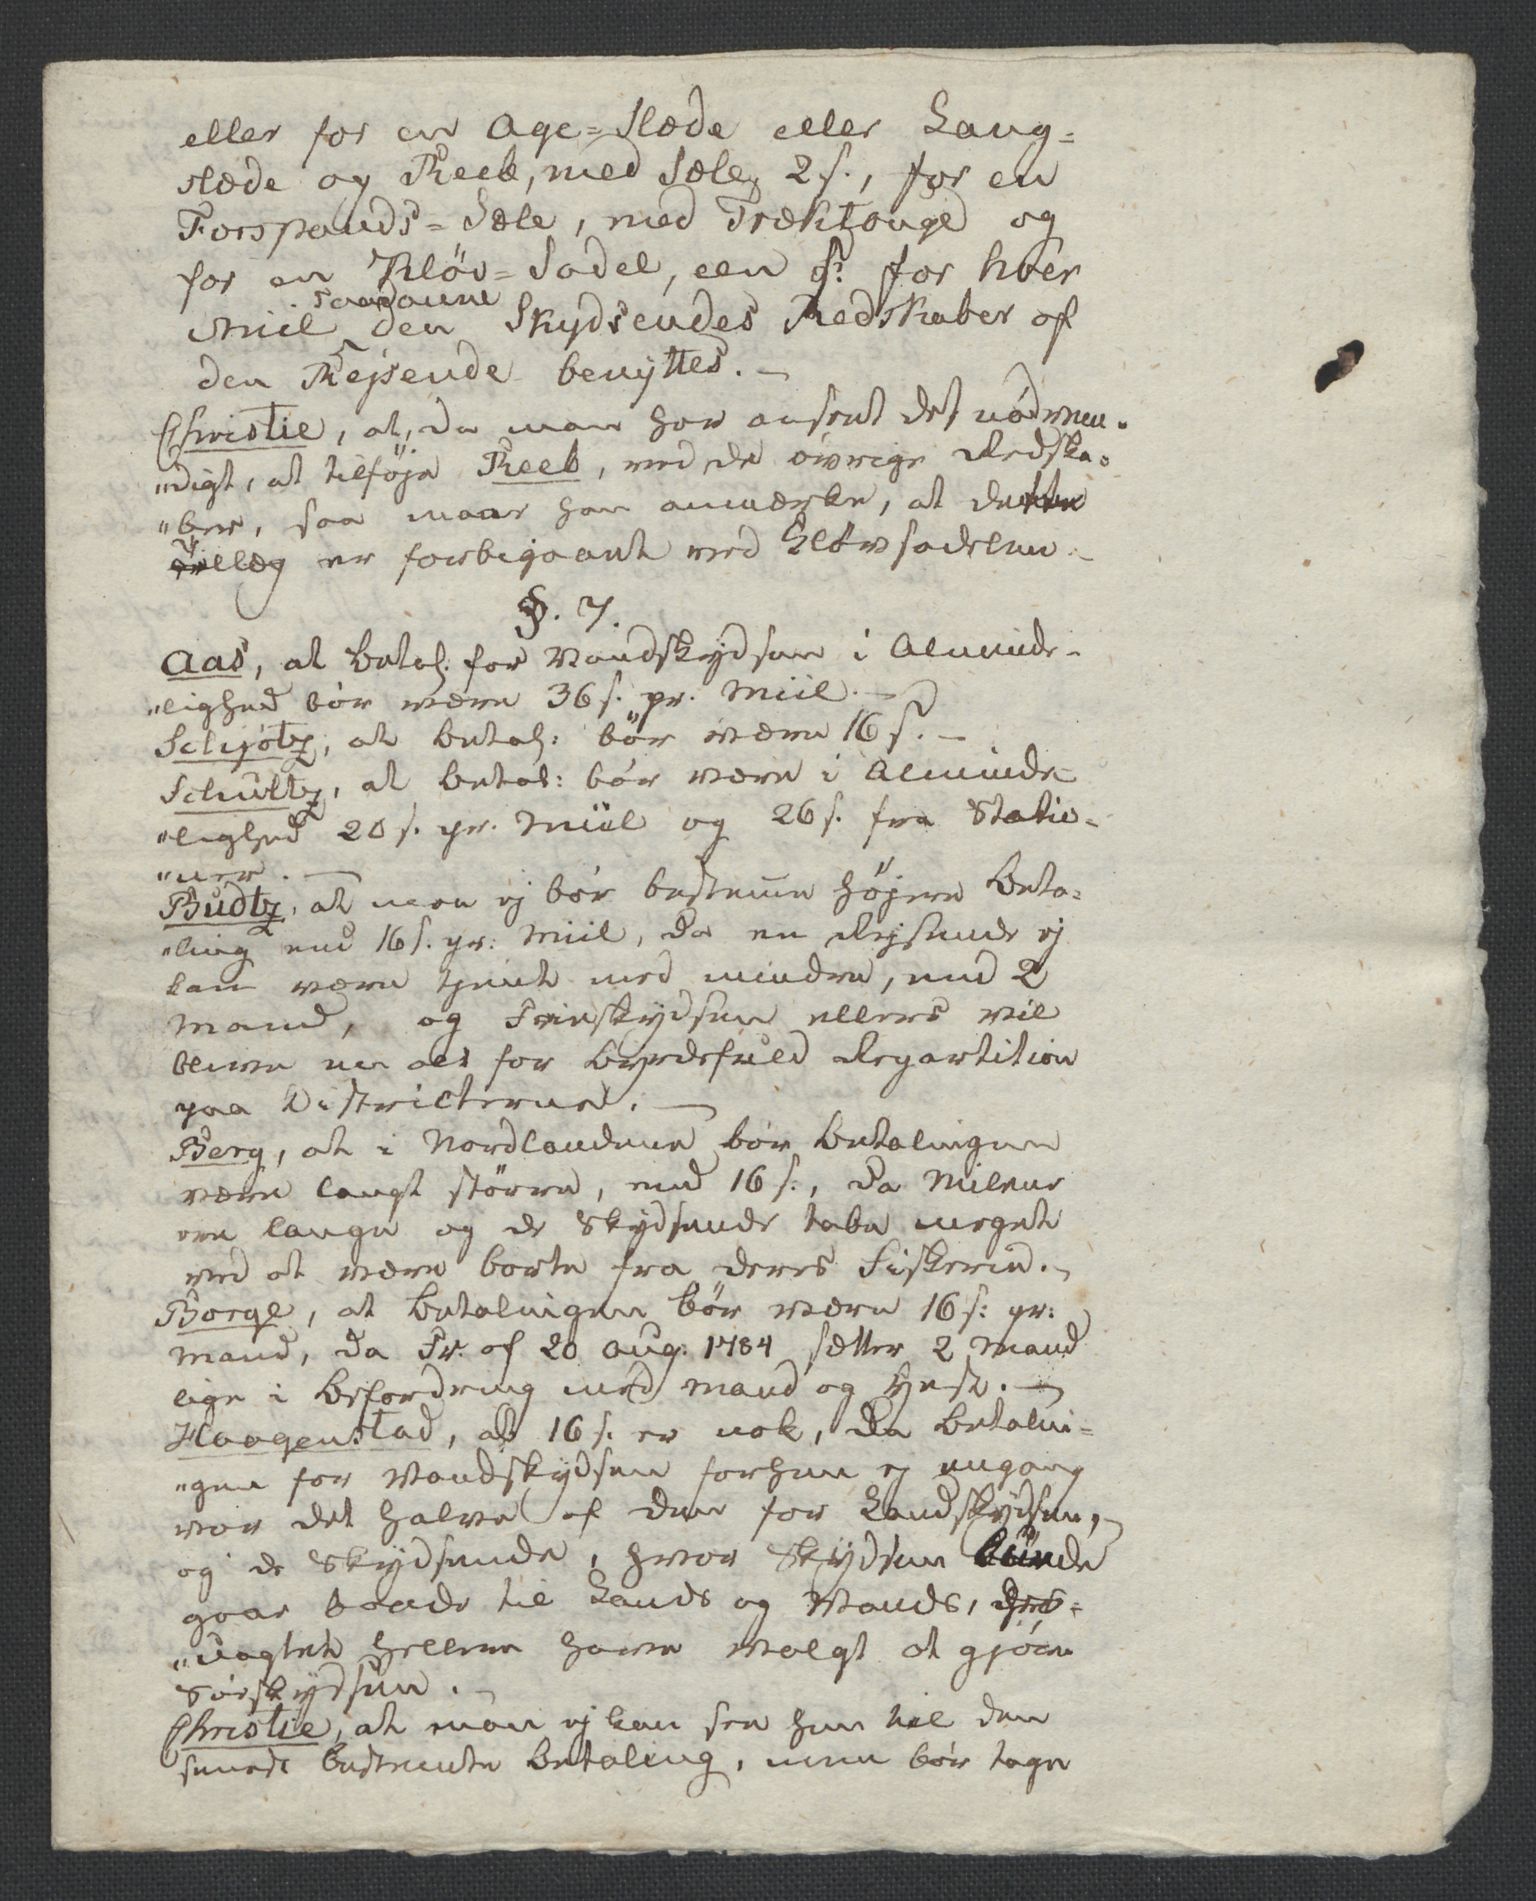 eller for en Age=Slæde eller Lang=
slæde og Reeb, med Sele, 2 s., for en
Forspands=Sæle, med Træktouge og
for en Kløv=Sadel, een s. for hver
Miil saadanne den Skydsendes Redskaber af
den Rejsende benyttes. —
Christie, at, da man har anseet det nødven=
"digt, at tilføje Reeb, ved de øvrige Redska=
"ber, saa maae han anmærke, at dette
Tillæg er forbigaaet ved Kløvsadelen. —
§. 7.
Aas, at betal: for Vandskydsen i Alminde=
"lighed bør være 36 s. pr. Miil. —
Schjøtz, at betal: bør være 16 s. —
Schultz, at betal: bør være i Alminde=
"lighed 20 s. pr. Miil og 26 s. fra Statio=
"ner. —
Budtz, at man ej bør bestemme højere Beta=
"ling end 16 s. pr: Miil, da en Rejsende ej
kan være tjent med mindre, end 2
Mand, og Friskydsen ellers vil
blive en alt for byrdefuld Repartition
paa Districterne. —
Berg, at i Nordlandene bør Betalingen
være langt større, end 16 s., da Milene
ere lange og de Skydsende tabe meget
ved at være borte fra deres Fiskerie. —
Borge, at Betalingen bør være 16 s: pr:
Mand, da Fr. af 20 Aug. 1784 sætter 2 Mand
lige i Befordring med Mand og Hest. —
Haagenstad, at 16 s. er nok, da Betalin=
"gen for Vandskydsen forhen ej engang
var det halve af den for Landskydsen,
og de Skydsende, hvor Skydsen baade
gaar baade til Lands og Vands, des=
"uagtet hellere have valgt at gjøre
Søskydsen. —
Christie, at man ej kan see hen til den
seneste bestemte Betaling, men bør tage